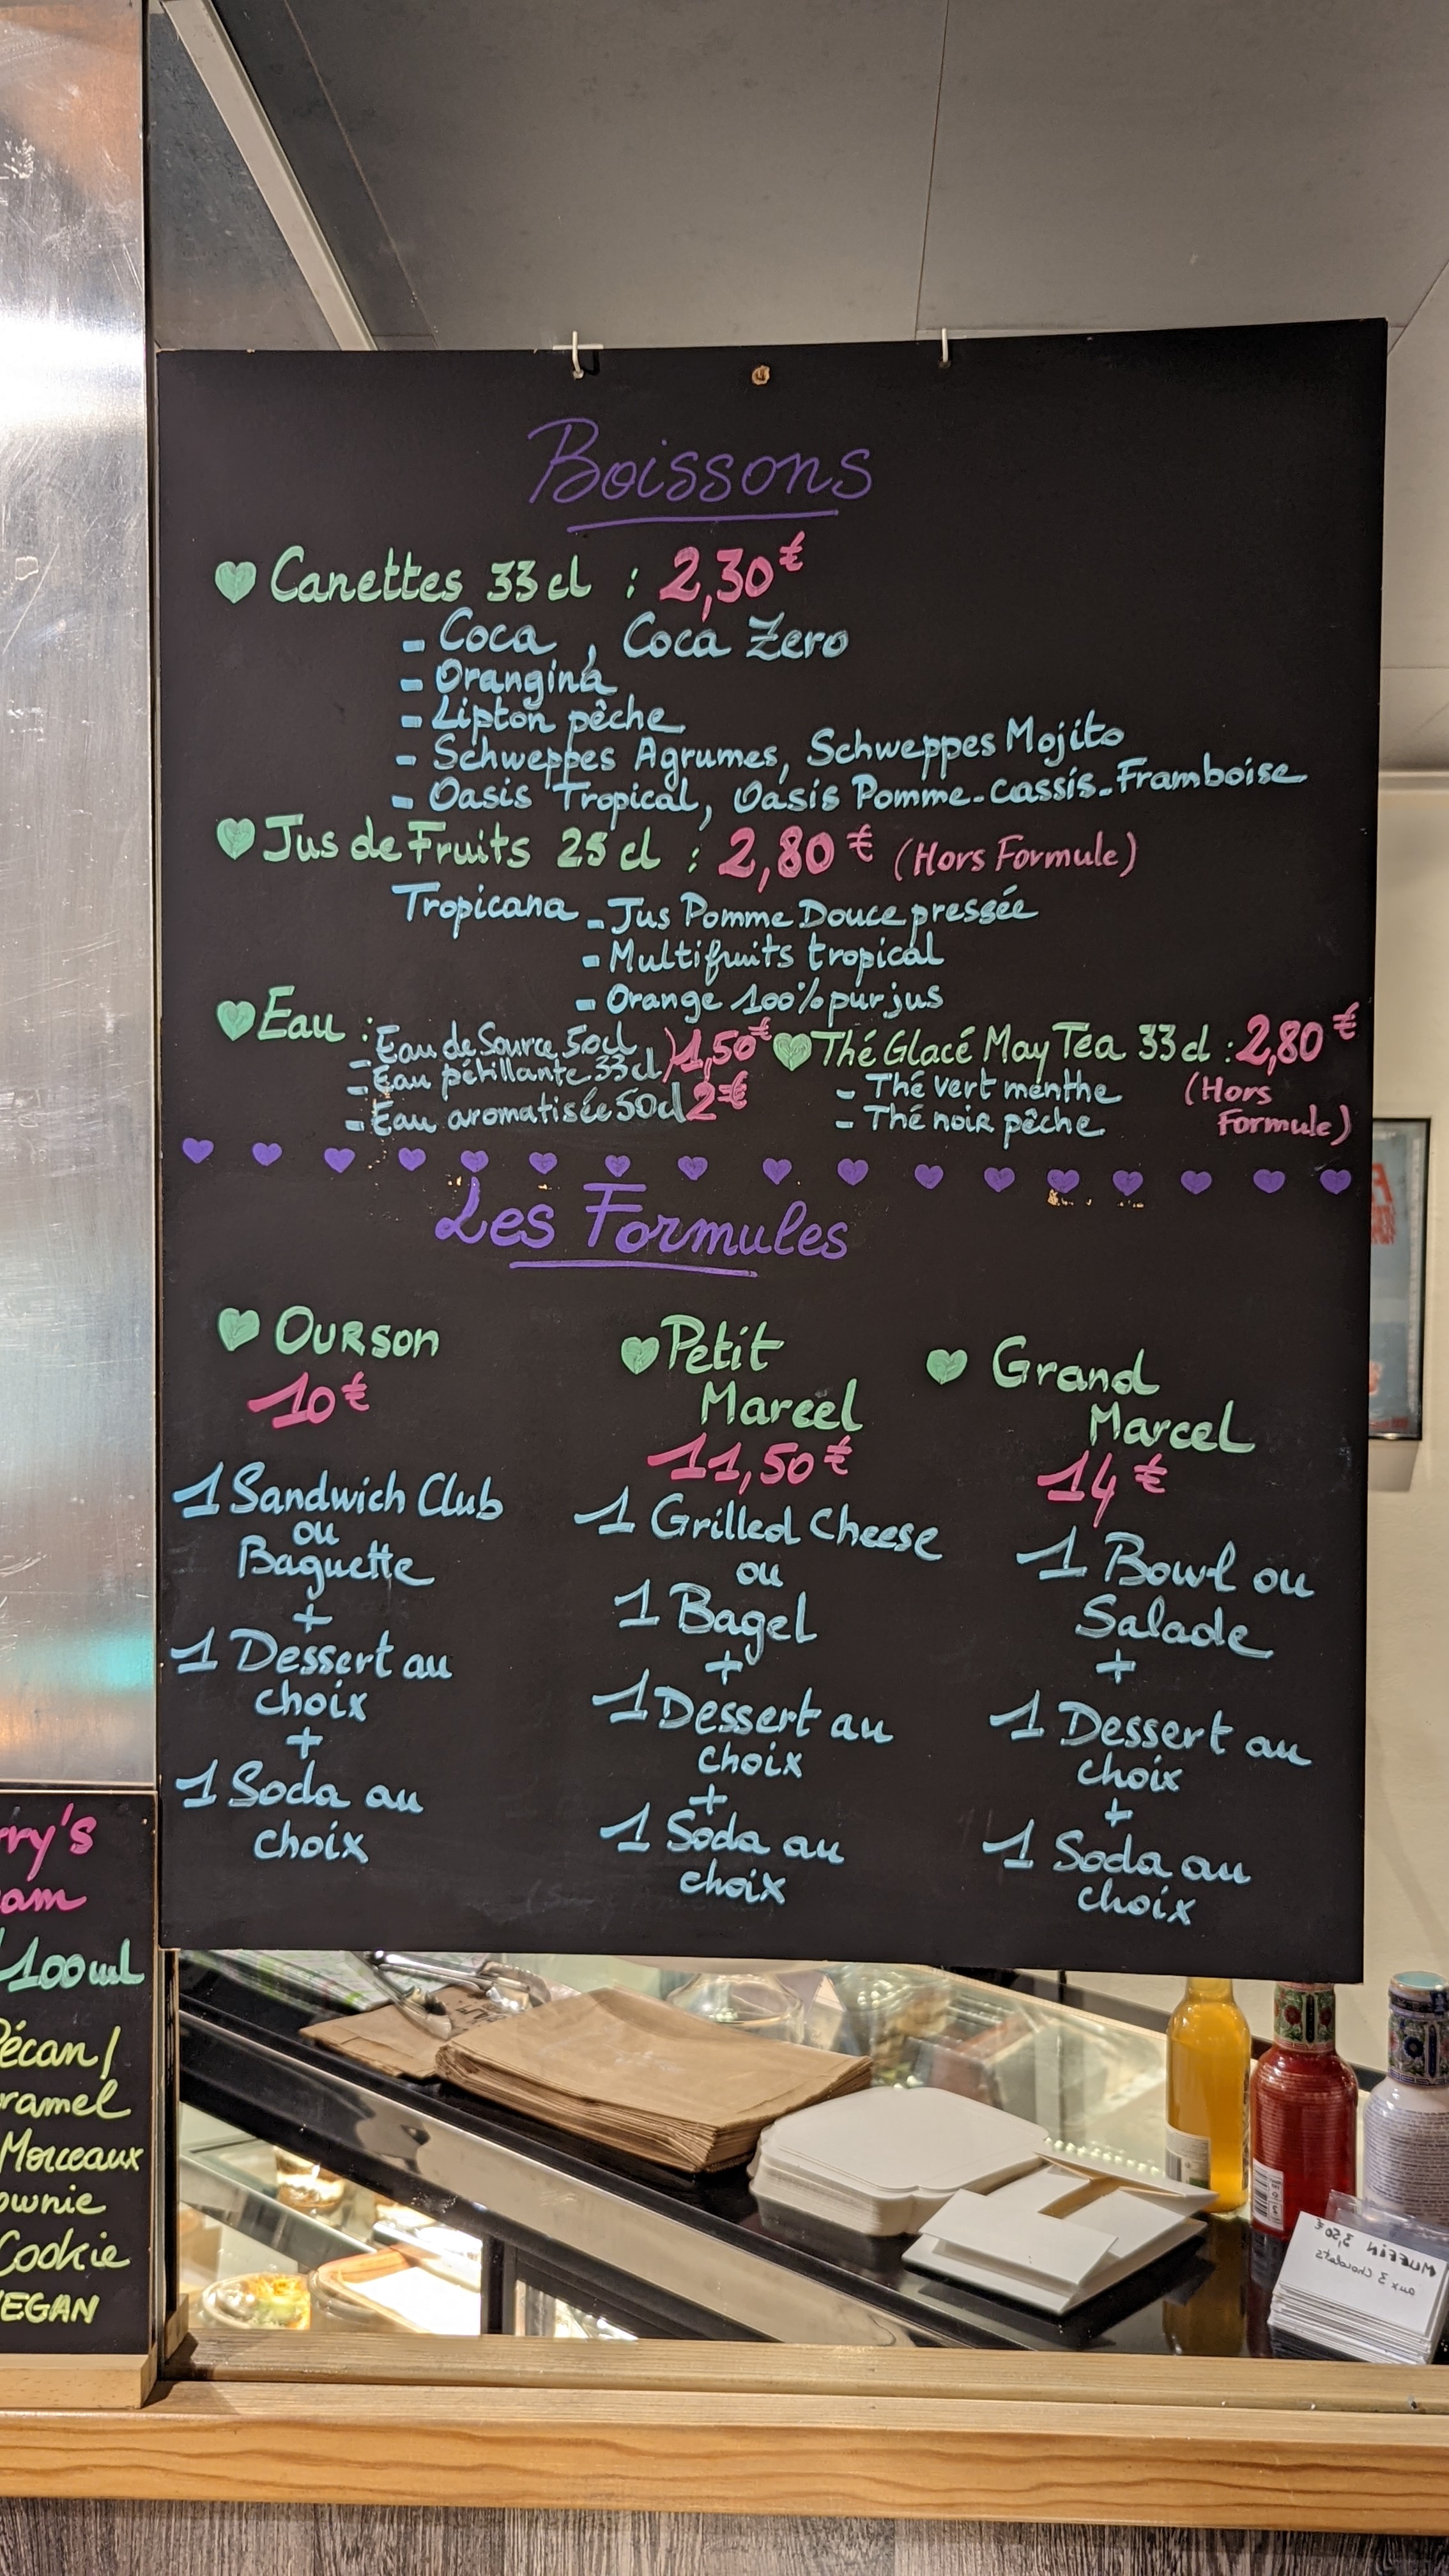 Boissons
Canettes 33cl : 2,30€
- Coca, Coca Zero
- Orangina
- Lipton pêche
- Schweppes Agrumes, Schweppes Mojito
- Oasis Tropical, Oasis Pomme-cassis-Framboise
Jus de Fruits 25cl : 2,80€ (Hors Formule)
Tropicana - Jus Pomme Douce pressée
- Multifruits tropical
- Orange 100% pur jus
Eau :
- Eau de Source 50cl
- Eau pétillante 33cl ) 1,50€
- Eau aromatisée 50cl 2€
Thé Glacé May Tea 33cl : 2,80€
- Thé vert menthe (Hors
- Thé noir pêche Formule)
Les Formules
OURSON
10€
1 Sandwich Club
ou
Baguette
+
1 Dessert au
choix
+
1 Soda au
choix
Petit
Marcel
11,50€
1 Grilled Cheese
ou
1 Bagel
+
1 Dessert au
choix
+
1 Soda au
choix
Grand
Marcel
14€
1 Bowl ou
Salade
+
1 Dessert au
choix
+
1 Soda au
choix
rry's
am
100ml
Pécan/
ramel
Morceaux
ownie
Cookie
VEGAN
MUFFIN 3,50€
aux 3 chocolats